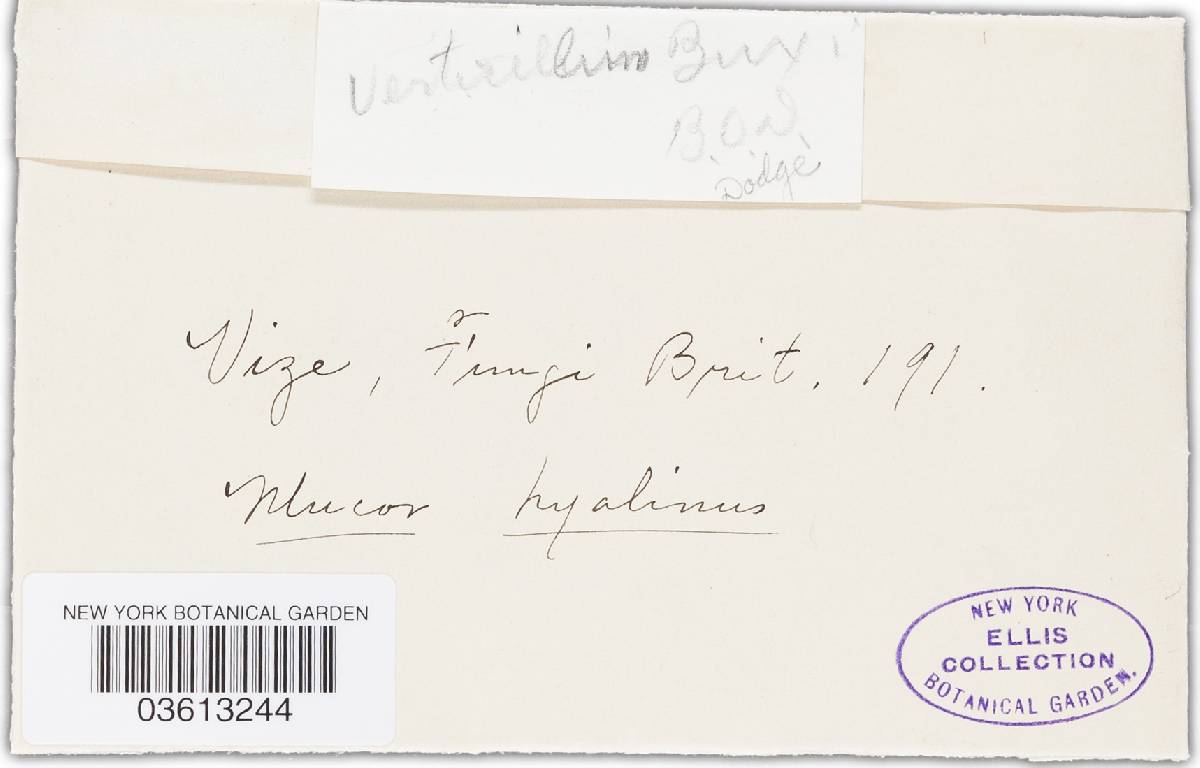 Verticillium Buxi
B.O.D.
Dodge
Vize, Fungi Brit. 191.
Mucor hyalinus
NEW YORK BOTANICAL GARDEN
03613244
NEW YORK
ELLIS
COLLECTION
BOTANICAL GARDEN.